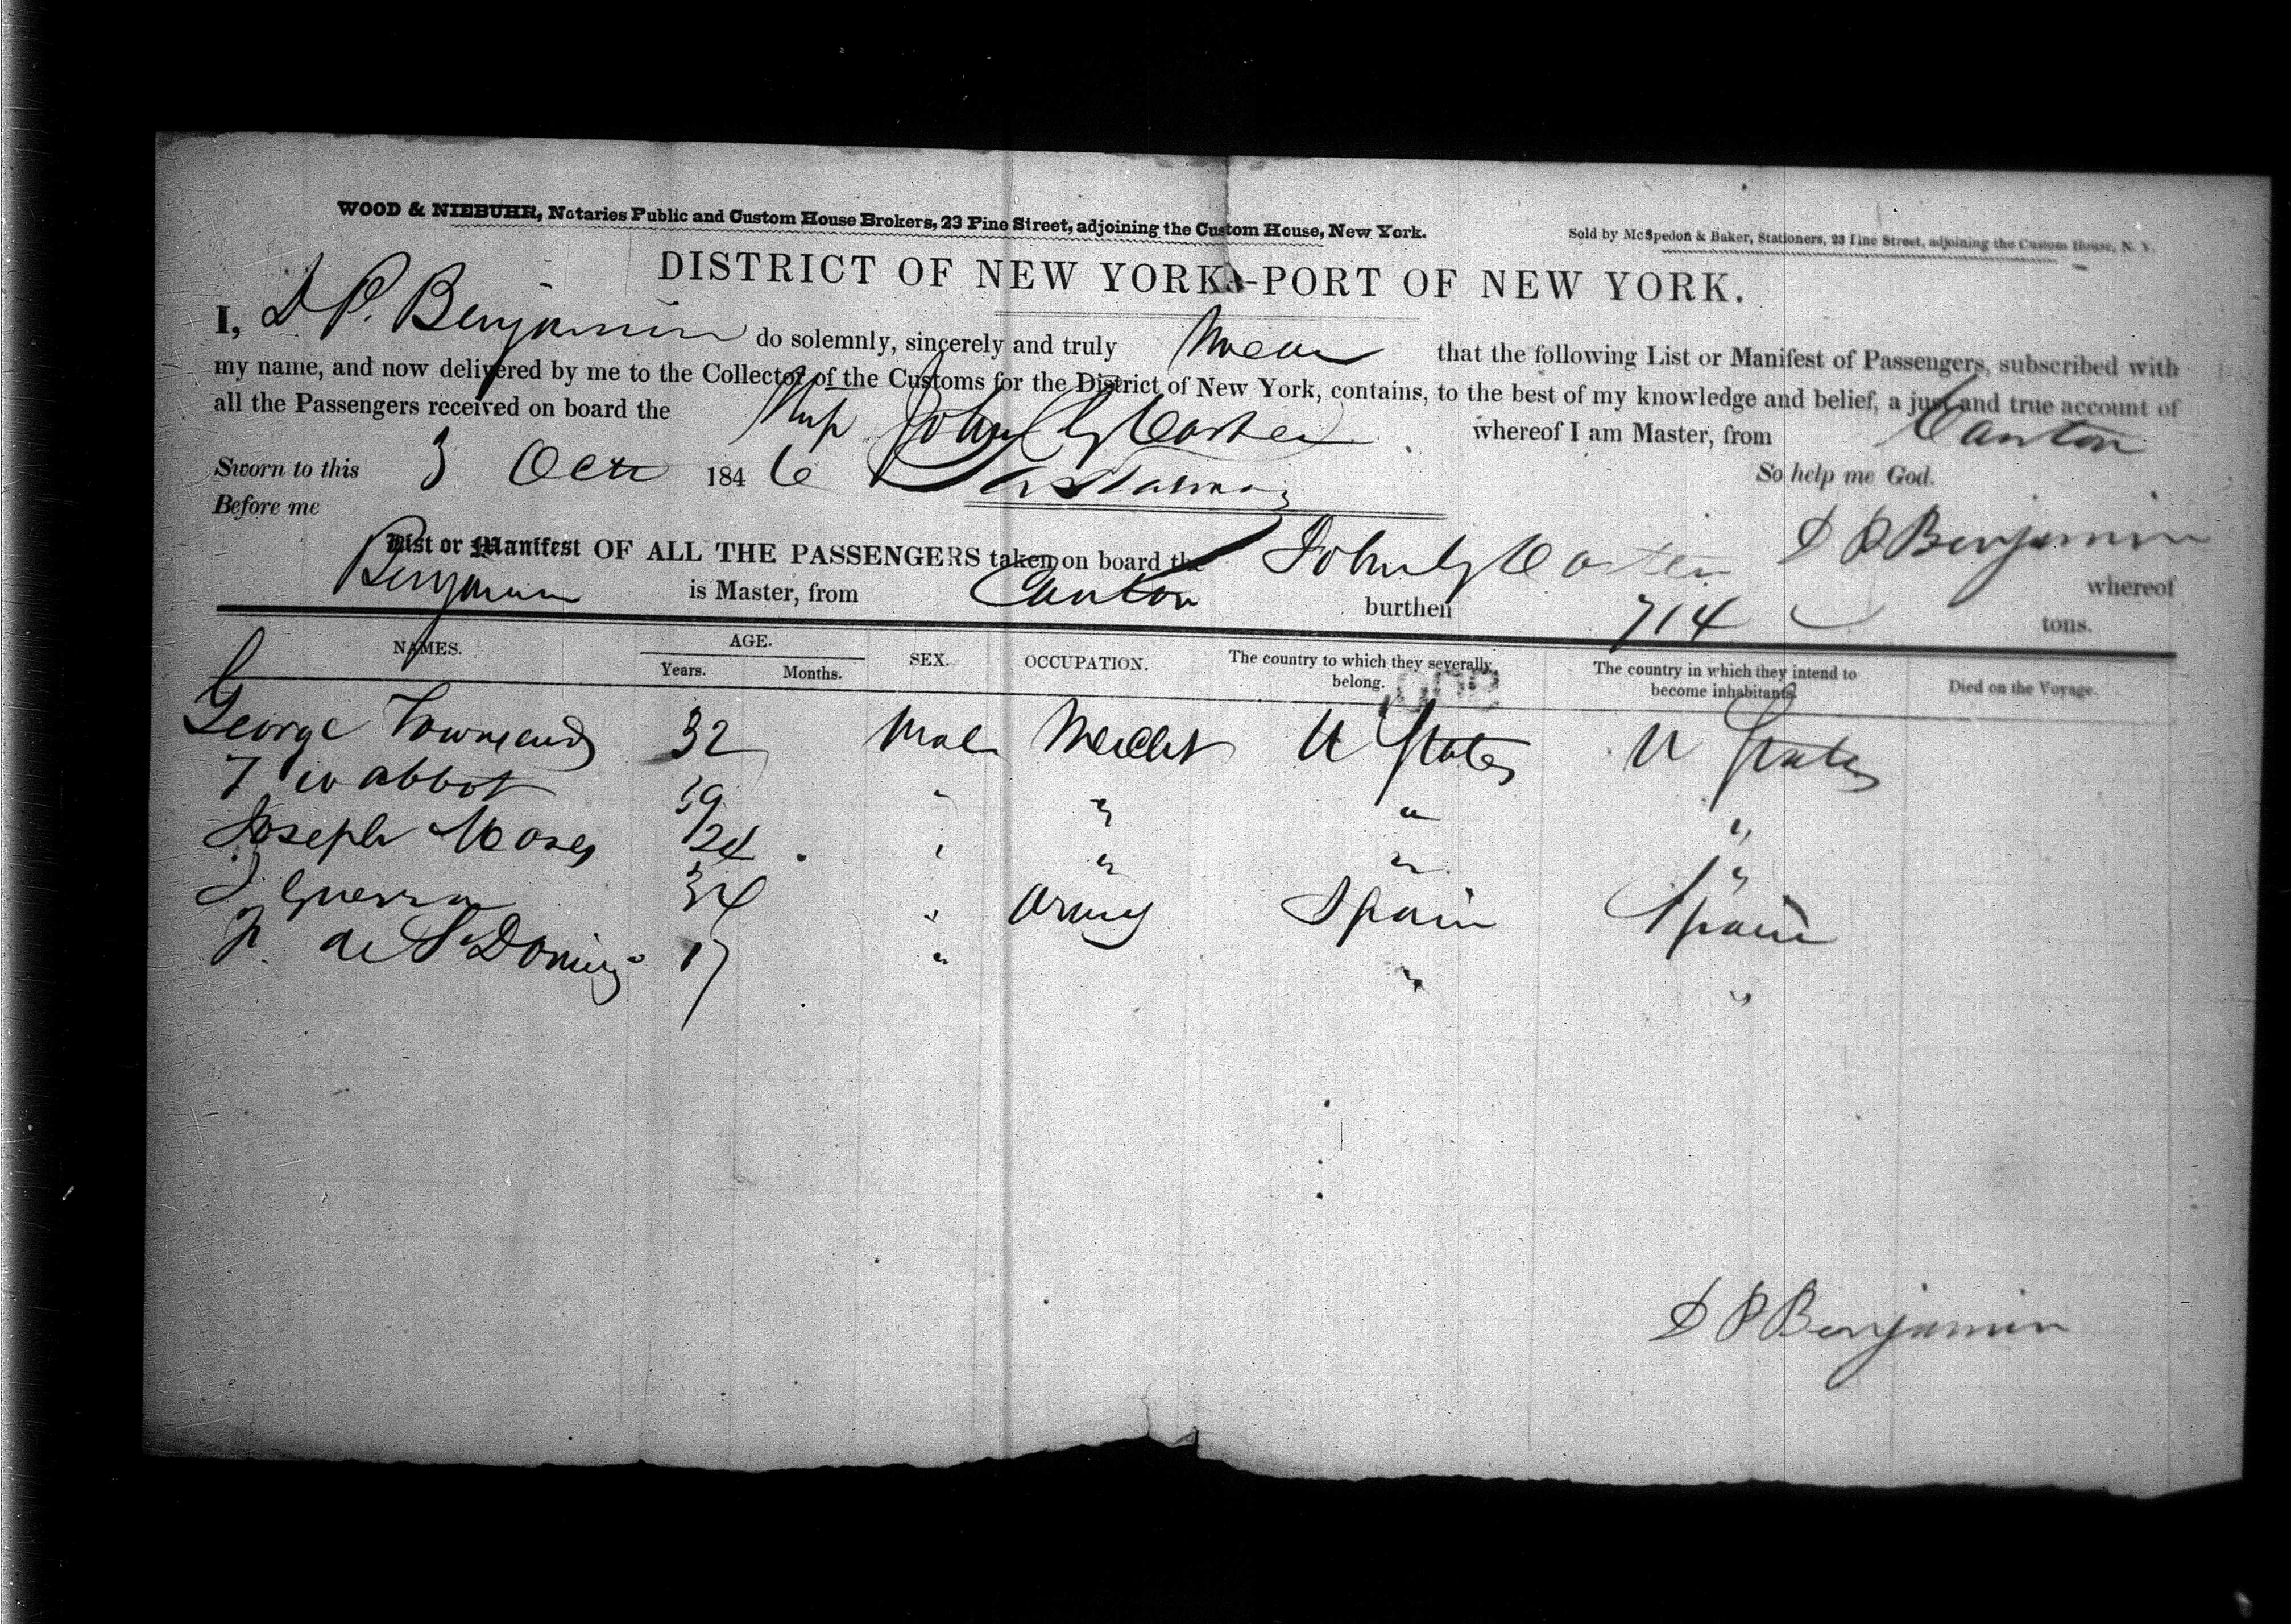 WOOD & NIEBUHR, Notaries Public and Custom House Brokers, 23 Pine Street, adjoining the Custom House, New York.
Sold by McSpedon & Baker, Stationers, 23 Pine Street, adjoining the Custom House, N. Y.
DISTRICT OF NEW YORK--PORT OF NEW YORK.
I, D P. Benjamin do solemnly, sincerely and truly swear that the following List or Manifest of Passengers, subscribed with
my name, and now delivered by me to the Collector of the Customs for the District of New York, contains, to the best of my knowledge and belief, a just and true account of
all the Passengers received on board the Ship John G Coster whereof I am Master, from Canton
Sworn to this 3 Oct 1846 So help me God.
Before me
D P Benjamin
List or Manifest OF ALL THE PASSENGERS taken on board the John G Coster whereof
Benjamin is Master, from Canton burthen 714 tons.
NAMES. AGE. SEX. OCCUPATION. The country to which they severally belong. The country in which they intend to become inhabitants. Died on the Voyage.
Years. Months.
George Townsend 32 Male Mercht U States U States
T W Abbot 39 " " " "
Joseph Moses 24 " " " "
J Guerra 34 " Army Spain Spain
F. de St Doming 17 " " "
D P Benjamin